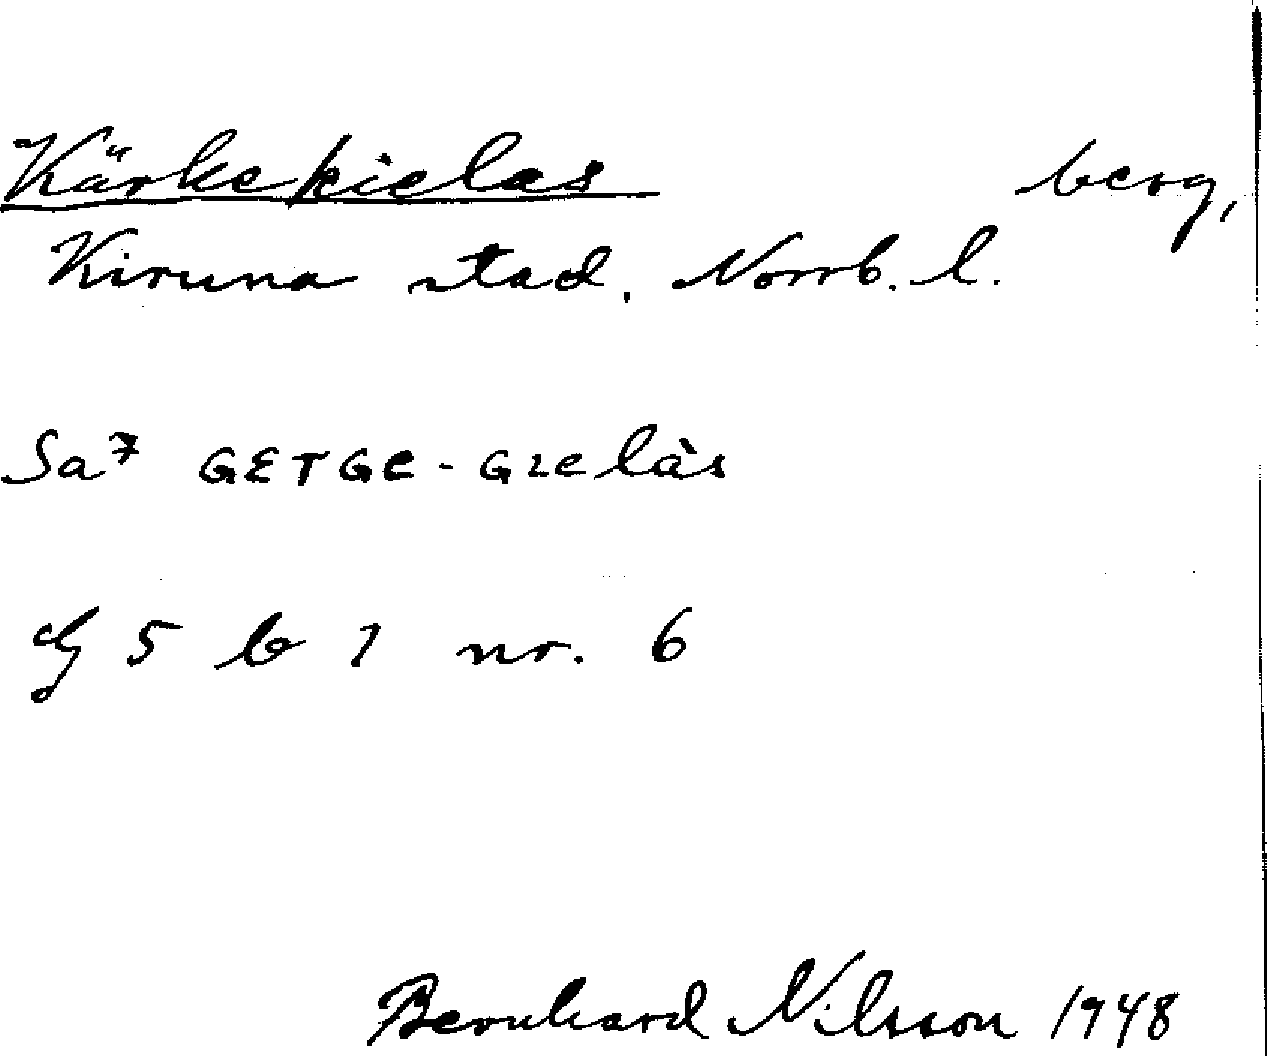 Kärkekielas berg,
Kiruna stad. Norrb. l.
Sa⁷ GETGE-GIelàs
dg 5 b 1 nr. 6
Bernhard Nilsson 1948